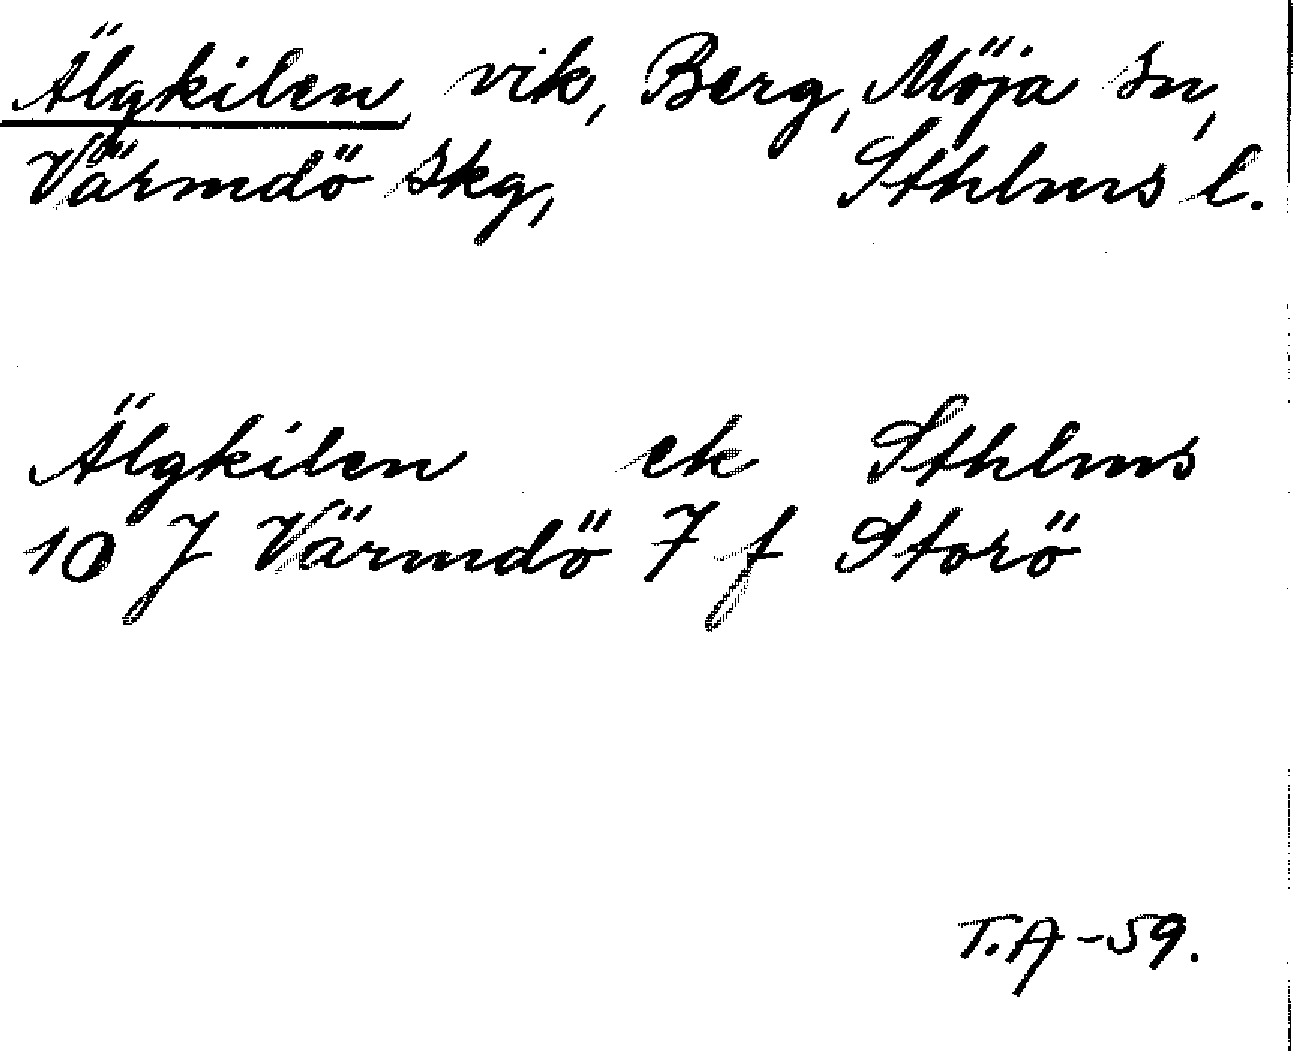 Älgkilen, vik, Berg, Möja sn,
Värmdö skg, Sthlms l.
Älgkilen ek Sthlms
10 J Värmdö 7 f Storö
T.A -59.